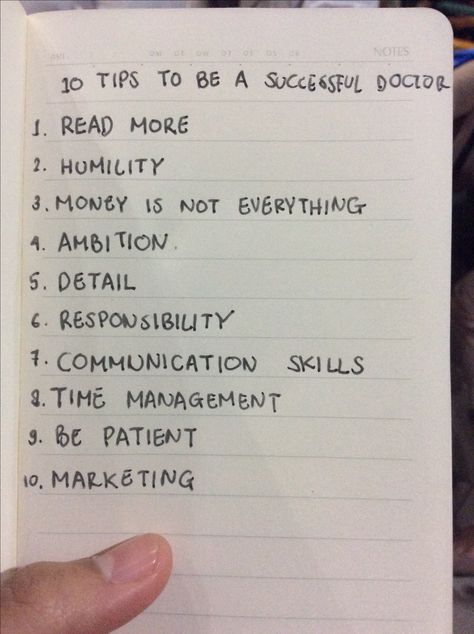 NOTES
10 TIPS TO BE A SUCCESSFUL DOCTOR
1. READ MORE
2. HUMILITY
3. MONEY IS NOT EVERYTHING
4. AMBITION.
5. DETAIL
6. RESPONSIBILITY
7. COMMUNICATION SKILLS
8. TIME MANAGEMENT
9. BE PATIENT
10. MARKETING